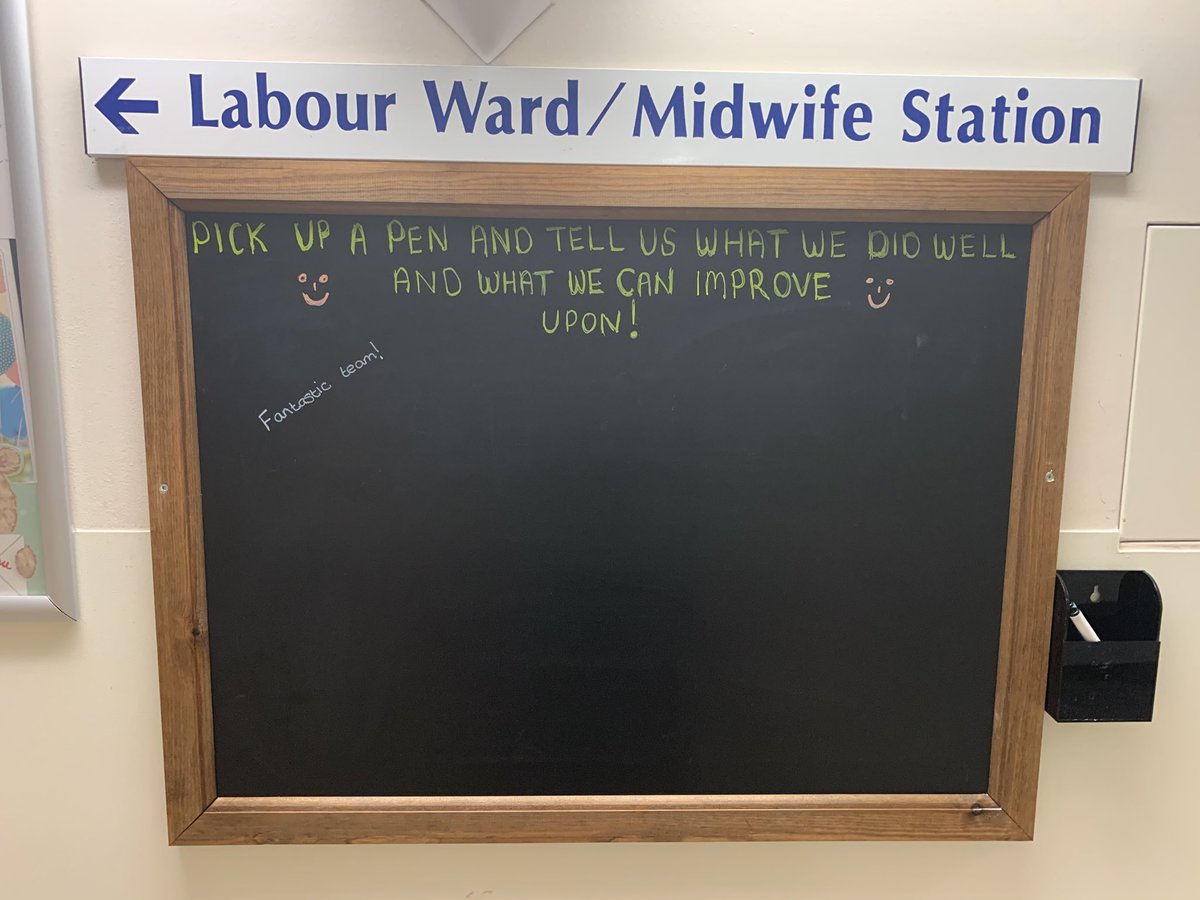 ← Labour Ward/Midwife Station
PICK UP A PEN AND TELL US WHAT WE DID WELL
AND WHAT WE CAN IMPROVE
UPON!
Fantastic team!